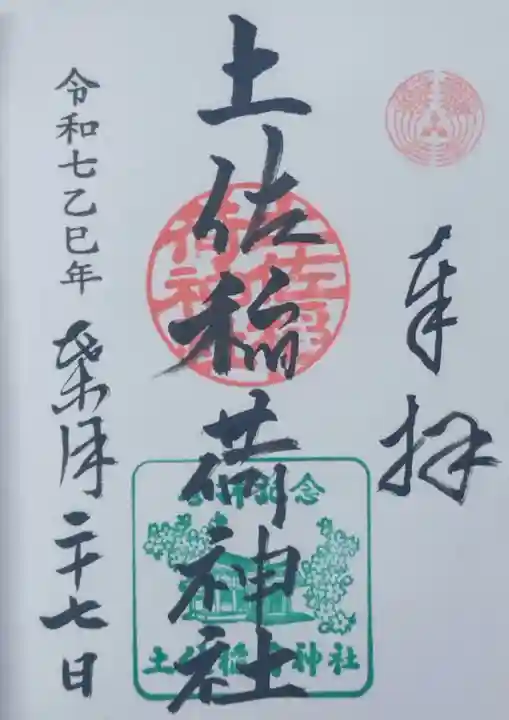 奉拝
土佐稲荷神社
令和七乙巳年 葉月二十七日
参拝記念
土佐稲荷神社